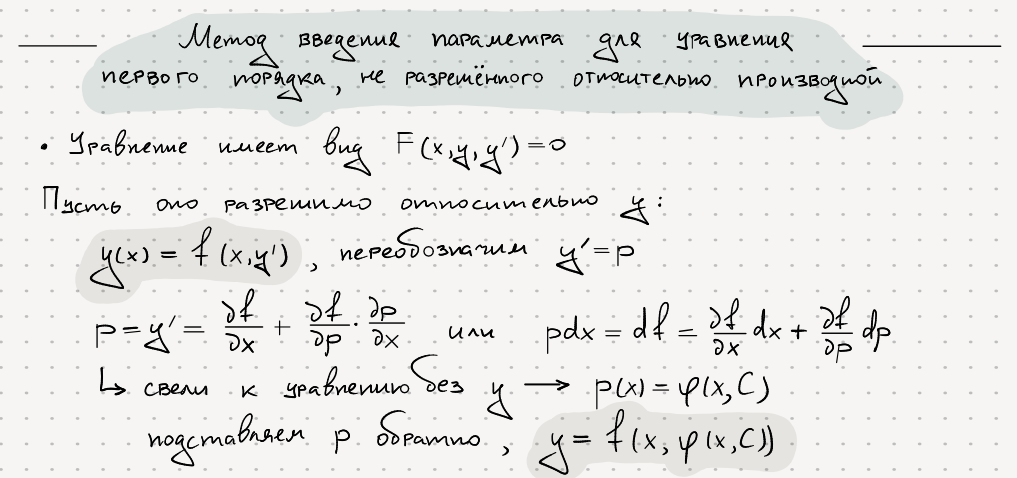 Метод введения параметра для уравнения
первого порядка, не разрешённого относительно производной
• Уравнение имеет вид F(x,y,y')=0
Пусть оно разрешимо относительно y:
y(x) = f(x,y'), переобозначим y'=p
p = y' = ∂f/∂x + ∂f/∂p · ∂p/∂x или pdx = df = ∂f/∂x dx + ∂f/∂p dp
↳ свели к уравнению без y → p(x) = φ(x,C)
подставляем p обратно, y = f(x, φ(x,C))